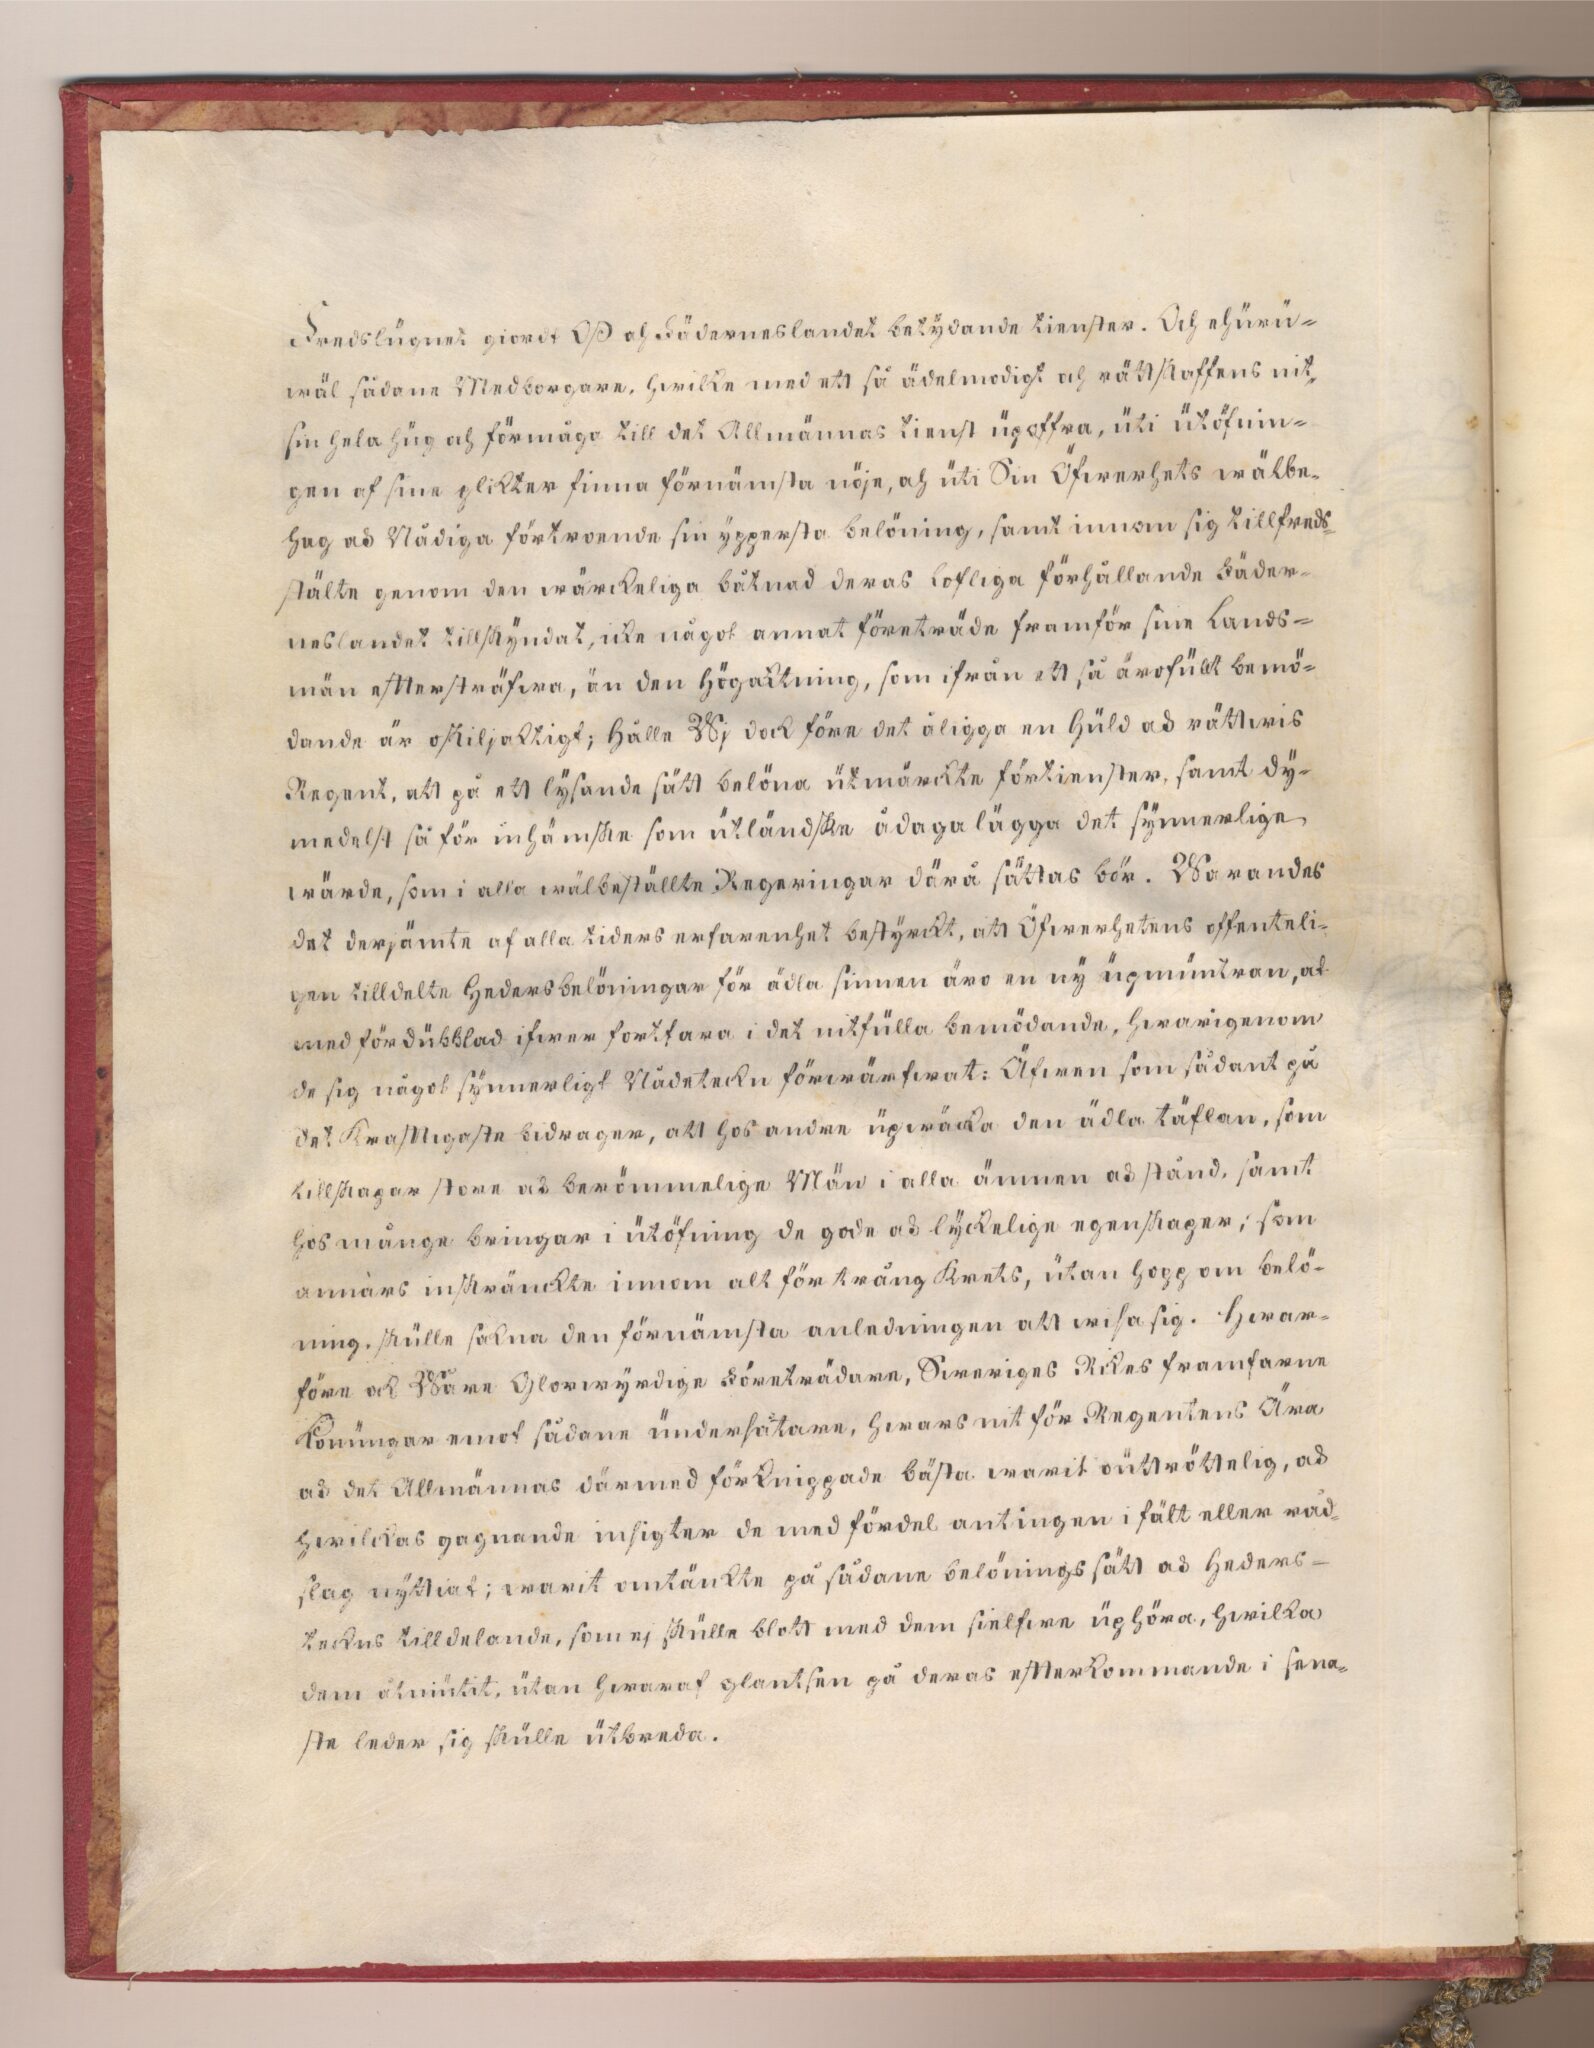 Fredslugnet giordt Oß och Fäderneslandet betydande tienster. Och ehuru-
wäl sådane Medborgare, hwilke med ett så ädelmodigt och rättskaffens nit,
sin hela hug och förmågo till det Allmännas tienst upoffra, uti utöfnin-
gen af sine plickter finna förnämsta nöje, och uti Sin Öfwerhets wälbe-
hag och Nådiga förtroende sin yppersta belöning, samt innom sig tillfreds-
stälte genom den wärckeliga båtnad deras lofliga förhållande Fäder-
neslandet tillskyndat, icke något annat företräde framför sine Lands-
män efftersträfwa, än den högacktning, som ifrån ett så ärofullt bemö-
dande är oskiljacktigt; Hålle Wj dock före det åligga en huld och rättwis
Regent, att på ett lysande sätt belöna utmärckte förtienster, samt dy-
medelst så för inhämske som utländske ådagalägga det synnerlige
wärde, som i alla wälbeställte Regeringar därå sättas bör. Warandes
det derjämte af alla tiders erfarenhet bestyrckt, att Öfwerhetens offenteli-
gen tilldelte Hedersbelöningar för ädla sinnen äro en ny upmuntran, at
med fördubblad ifwer fortfara i det nitfulla bemödande, hwarigenom
de sig något synnerligt Nådeteckn förwärfwat: Äfwen som sådant på
det krafftigaste bidrager, att hos andre upwäcka den ädla täflan, som
tillskapar store och berömmelige Män i alla ämnen och stånd, samt
hos månge bringar i utöfning de gode och lyckelige egenskaper, som
annars inskränckte innom alt för trång krets, utan hopp om belö-
ning, skulle sakna den förnämsta anledningen att wisa sig. Hwar-
före ock Wåre Glorwyrdige Företrädare, Sweriges Rikes framfarne
Konungar emot sådane undersåtare, hwars nit för Regentens Ära
och det Allmännas därmed förknippade bästa warit outtröttelig, och
hwilckas gagnande insigter de med fördel antingen i fält eller råd-
slag nyttiat; warit omtänckte på sådane belönings sätt och Heders-
teckns tilldelande, som ej skulle blott med dem sielfwe uphöra, hwilka
dem åtniutit, utan hwaraf glantsen på deras effterkommande i sena-
ste leder sig skulle utbreda.